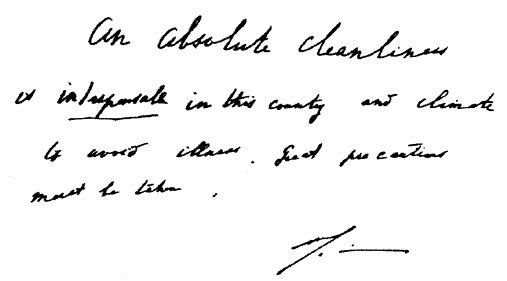 An absolute cleanliness
is indispensable in this country and climate
to avoid illness. Great precautions
must be taken.